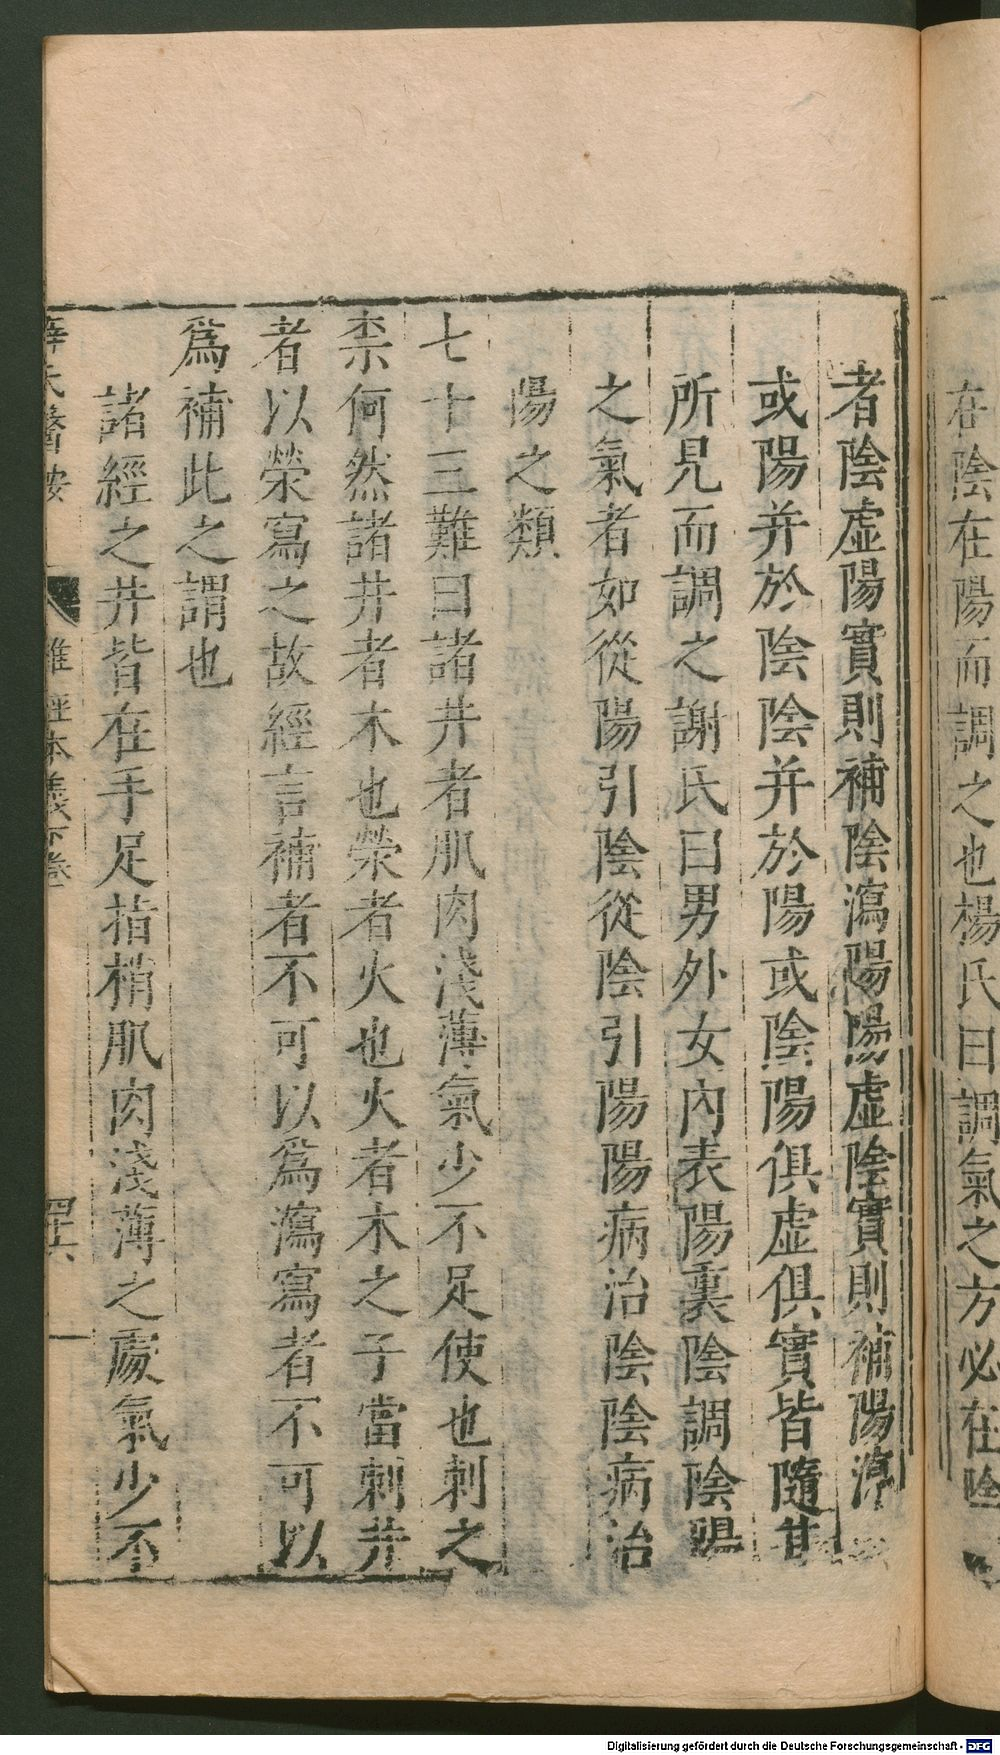 在陰在陽而調之也楊氏曰調氣之方必在陰
者陰虛陽實則補陰瀉陽陽虛陰實則補陽瀉
或陽并於陰陰并於陽或陰陽俱虛俱實皆隨其
所見而調之謝氏曰男外女內表陽裏陰調陰陽
之氣者如從陽引陰從陰引陽陽病治陰陰病治
陽之類
七十三難曰諸井者肌肉淺薄氣少不足使也刺之
柰何然諸井者木也榮者火也火者木之子當刺井
者以榮寫之故經言補者不可以爲瀉寫者不可以
爲補此之謂也
諸經之井皆在手足指梢肌肉淺薄之處氣少不
薛氏醫按 難經本義下卷 四十六
Digitalisierung gefördert durch die Deutsche Forschungsgemeinschaft - DFG